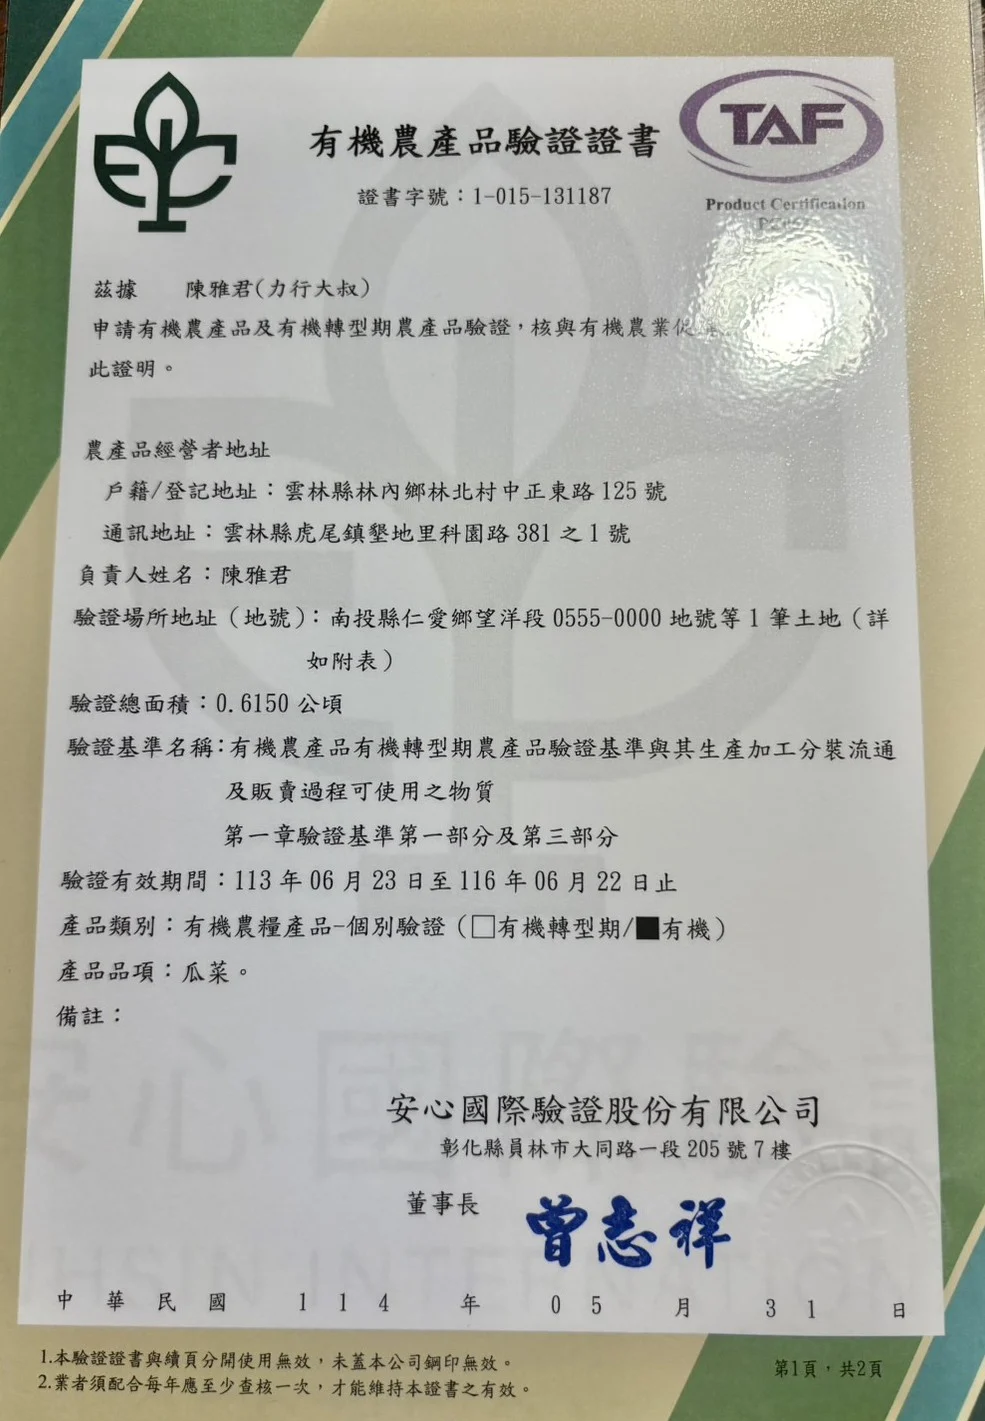 有機農產品驗證證書
TAF
證書字號：1-015-131187
Product Certification
茲據 陳雅君(力行大叔)
申請有機農產品及有機轉型期農產品驗證，核與有機農業促
此證明。
農產品經營者地址
戶籍/登記地址：雲林縣林內鄉林北村中正東路 125 號
通訊地址：雲林縣虎尾鎮墾地里科園路 381 之 1 號
負責人姓名：陳雅君
驗證場所地址（地號）：南投縣仁愛鄉望洋段 0555-0000 地號等 1 筆土地（詳
如附表）
驗證總面積：0.6150 公頃
驗證基準名稱：有機農產品有機轉型期農產品驗證基準與其生產加工分裝流通
及販賣過程可使用之物質
第一章驗證基準第一部分及第三部分
驗證有效期間：113 年 06 月 23 日至 116 年 06 月 22 日止
產品類別：有機農糧產品-個別驗證（□有機轉型期/■有機）
產品品項：瓜菜。
備註：
安心國際驗證股份有限公司
彰化縣員林市大同路一段 205 號 7 樓
董事長 曾志祥
中華民國 114 年 05 月 31 日
1.本驗證證書與續頁分開使用無效，未蓋本公司鋼印無效。
2.業者須配合每年應至少查核一次，才能維持本證書之有效。
第1頁，共2頁